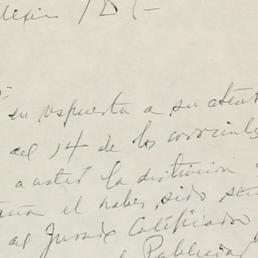 en respuesta a su atent
del 14 de los corrientes
a usted la distincion
el haber sido
del Jurado Calificador
Publicidad